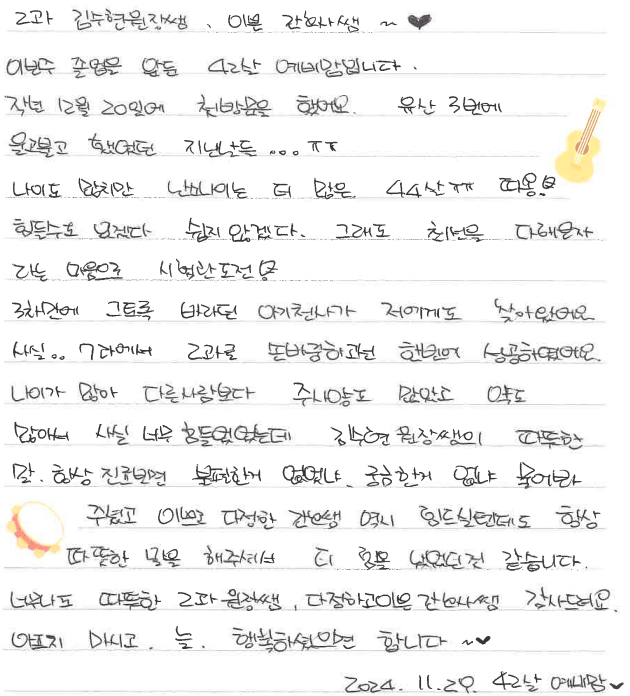 2과 김수현원장쌤, 이쁜 간호사쌤 ~ ♥
이번주 졸업을 앞둔 42살 예비맘입니다.
작년 12월 20일에 첫방문을 했어요. 유산 3번에
울고불고 했었던 지난날들...ㅠㅠ
나이도 많지만 난소나이는 더 많은 44살ㅠㅠ 띠옹!
힘들수도 있겠다 쉽지 않겠다. 그래도 최선을 다해보자
라는 마음으로 시험관도전!
3차만에 그토록 바라던 아기천사가 저에게도 찾아왔어요
사실.. 7과에서 2과로 또바꿈하고선 한번에 성공하였어요.
나이가 많아 다른사람보다 주사양도 많았고 약도
많아서 사실 너무 힘들었었는데 김수현 원장쌤의 따뜻한
말. 항상 진료보면 불편한게 없었냐, 궁금한게 없냐 물어봐
주셨고 이쁘고 다정한 간호쌤 역시 힘드실텐데도 항상
따뜻한 말을 해주셔서 더 힘을 냈었던것 같습니다.
너무나도 따뜻한 2과 원장쌤, 다정하고이쁜 간호사쌤 감사드려요.
아프지 마시고, 늘. 행복하셨으면 합니다 ~♥
2024. 11. 29. 42살 예비맘♥